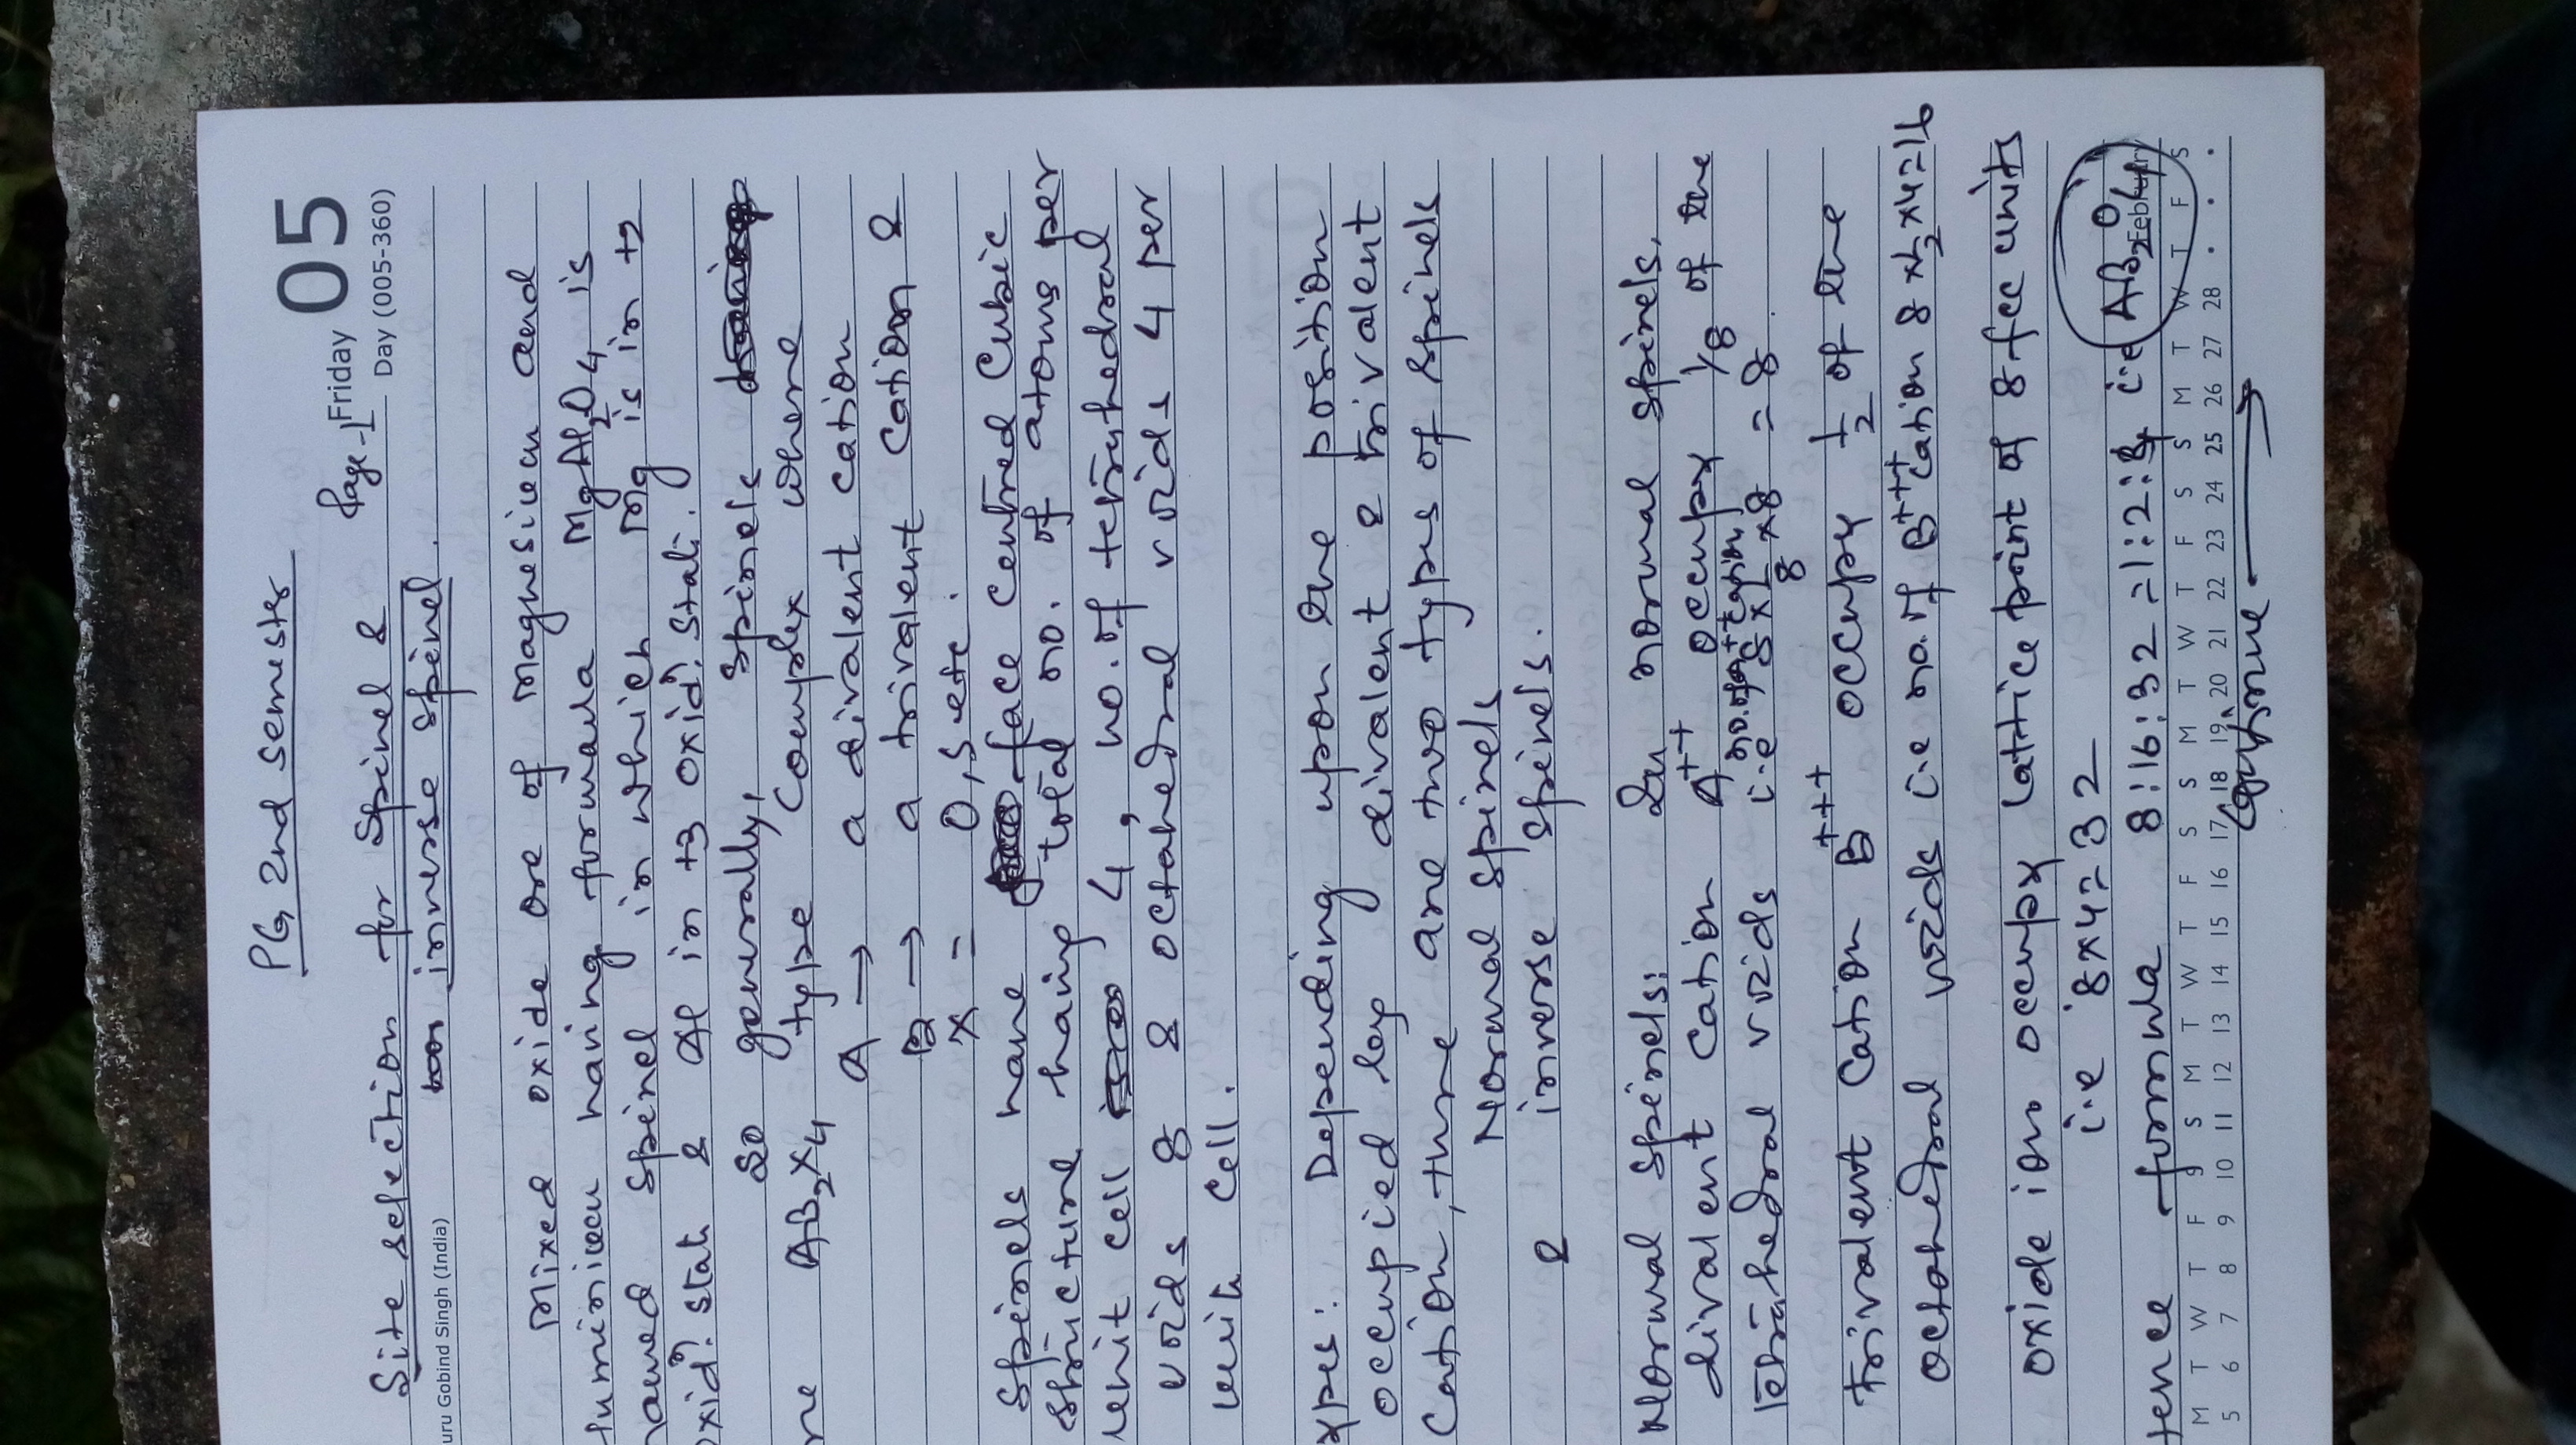 PG 2nd semester
Page-1 Friday 05
Day (005-360)
Site selection for Spinel &
inverse spinel.
uru Gobind Singh (India)
Mixed oxide ore of magnesium and
luminium having formula MgAl2O4 is
named spinel in which Mg is in +2
oxidn. state & Al in +3 oxidn. state.
So generally, spinels
are AB2X4 type complex where
A → a divalent cation
B → a trivalent cation &
X = O, S etc.
Spinels have face centred cubic
structure having total no. of atoms per
unit cell 4, no. of tetrahedral
voids 8 & octahedral voids 4 per
unit cell.
ypes: Depending upon the position
occupied by divalent & trivalent
cation, there are two types of spinels
Normal spinels
& inverse spinels.
Normal spinels: In normal spinels,
divalent cation A++ occupy 1/8 of the
no. of A++ cation
tetrahedral voids i.e 8×1/8×8 = 8.
trivalent cation B+++ occupy 1/2 of the
octahedral voids i.e no. of B+++ cation 8×1/2×4=16
oxide ion occupy lattice point of 8 fcc units
i.e 8×4=32
tence formula 8:16:32 = 1:2:4 i.e AB2O4
February
M T W T F S S M T W T F S S M T W T F S S M T W T F S
5 6 7 8 9 10 11 12 13 14 15 16 17 18 19 20 21 22 23 24 25 26 27 28 • • •